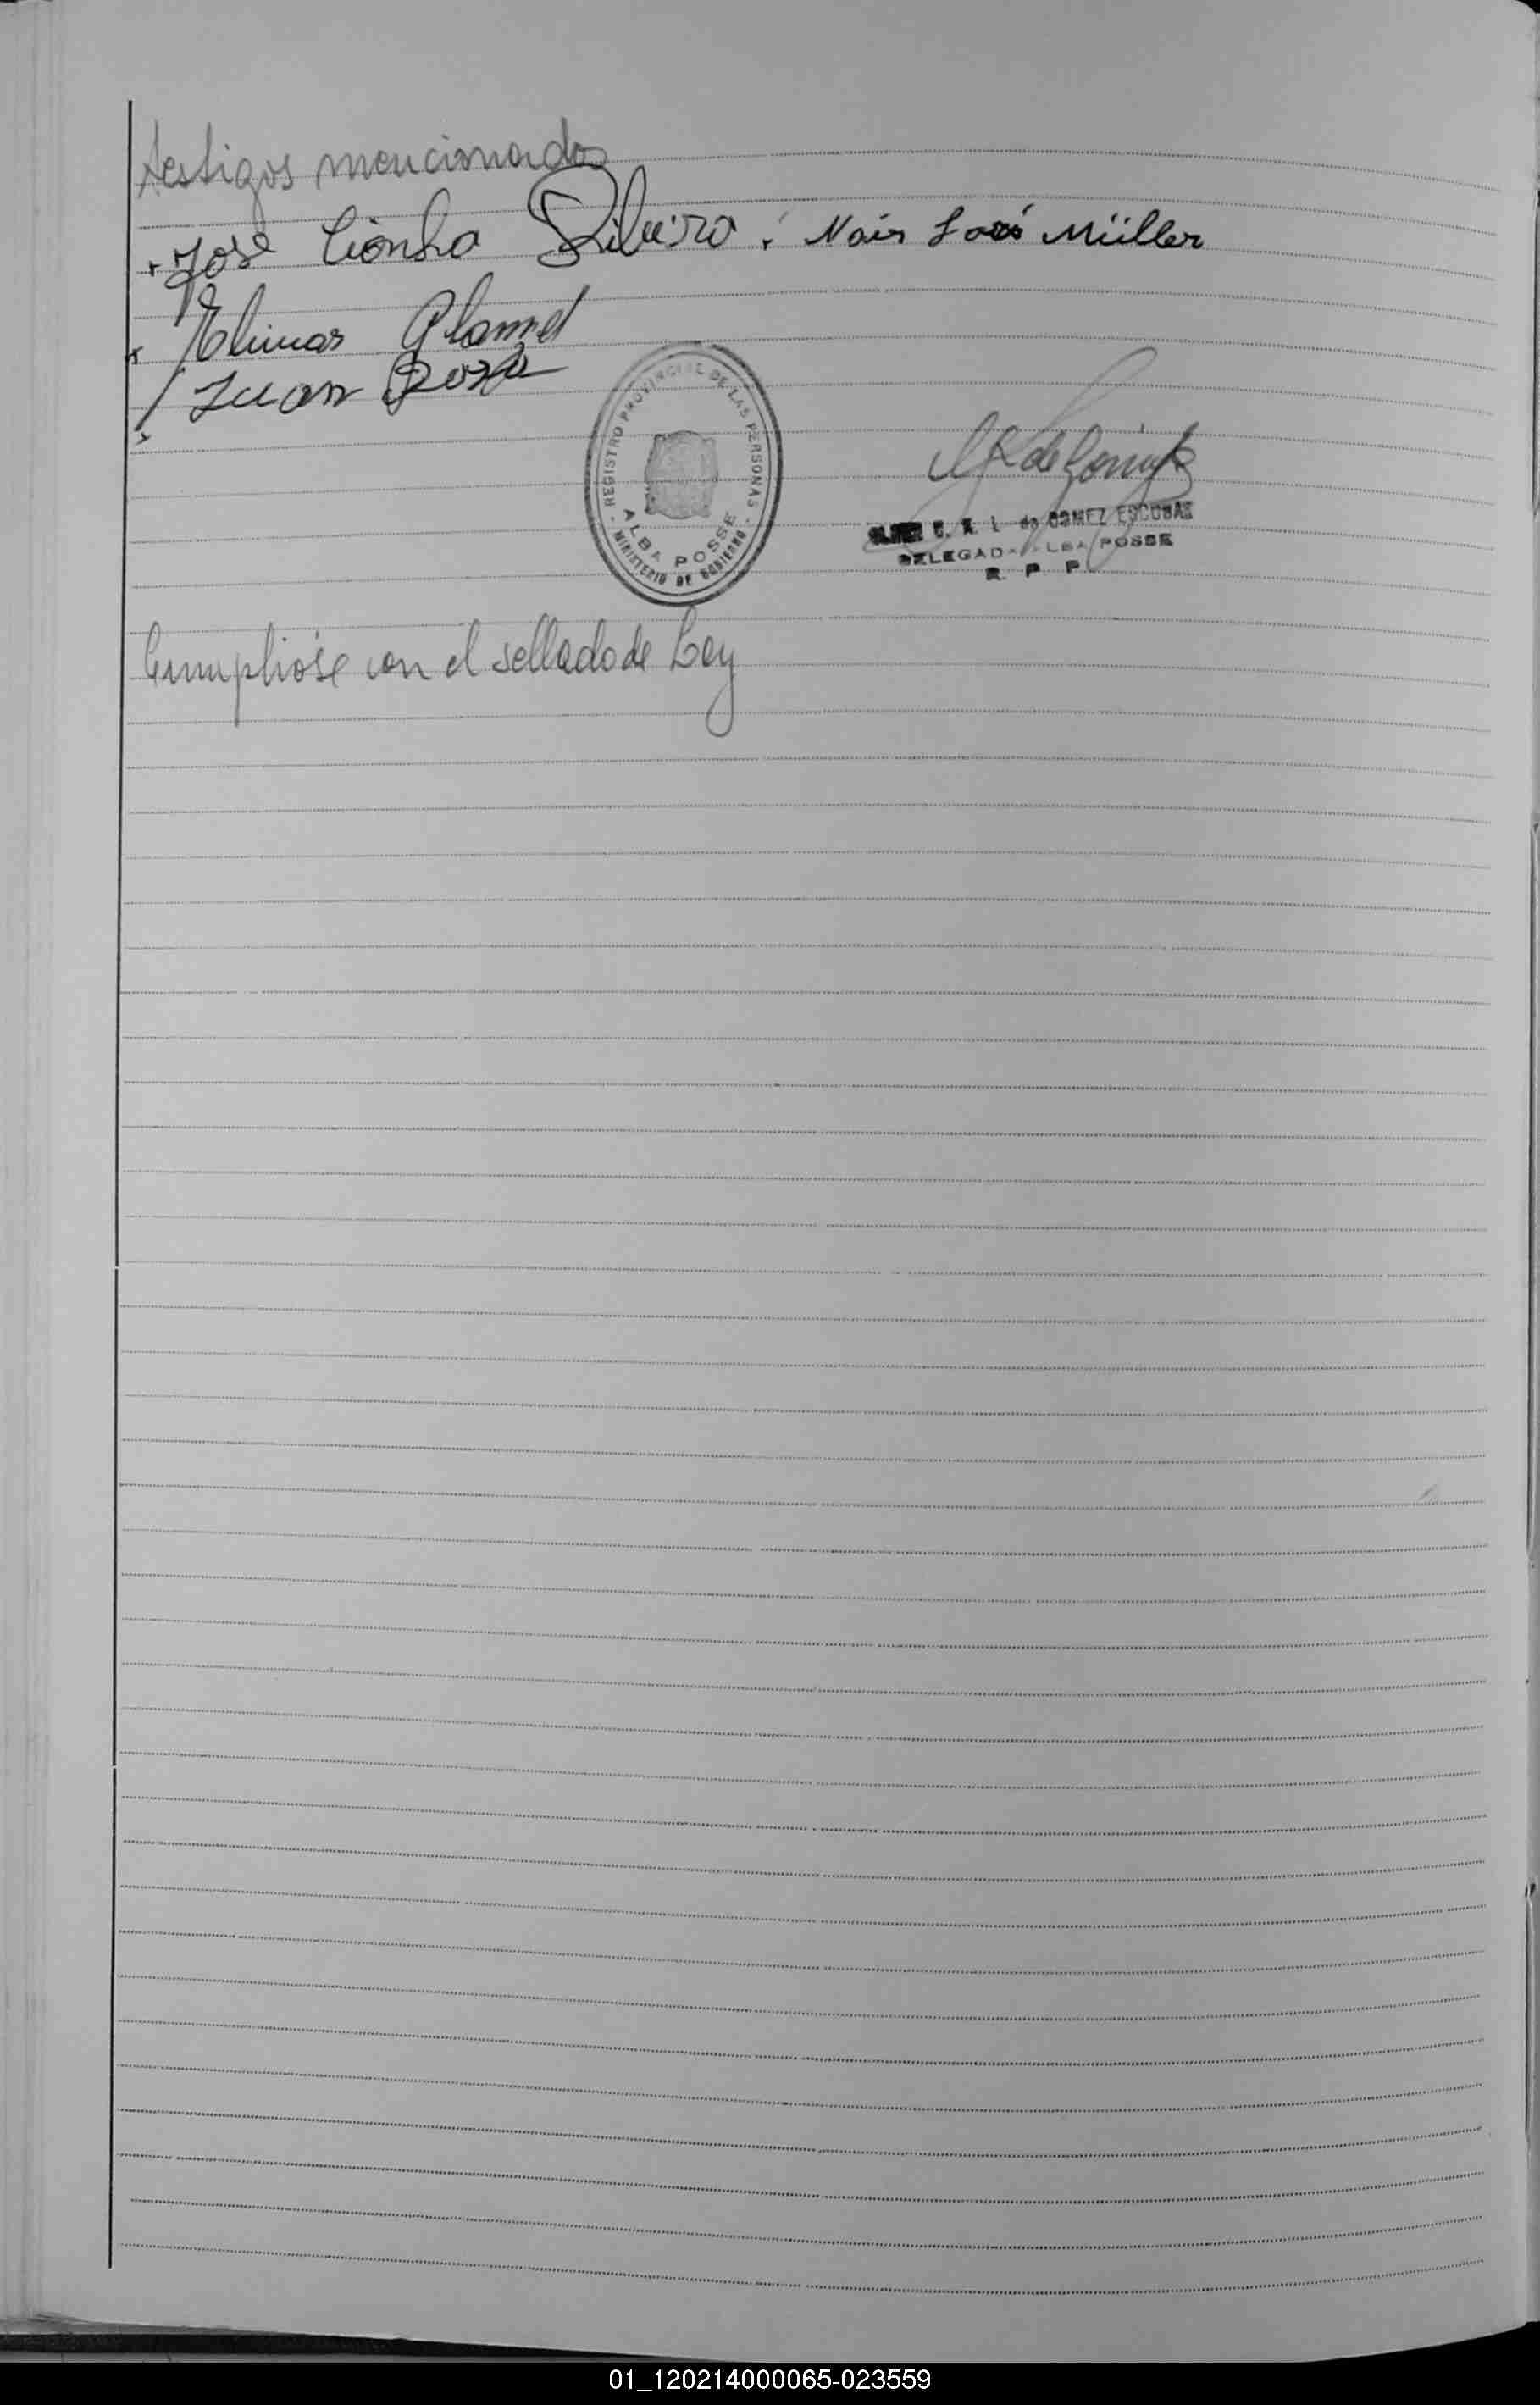 testigos mencionados
José Cionha Ribeiro. Nair Müller
Elimar
Juan Roza
REGISTRO PROVINCIAL DE LAS PERSONAS
ALBA POSSE
MINISTERIO DE GOBIERNO
de GOMEZ ESCOBAR
DELEGADA ALBA POSSE
R. P. P.
Cumplióse con el sellado de Ley
01_120214000065-023559